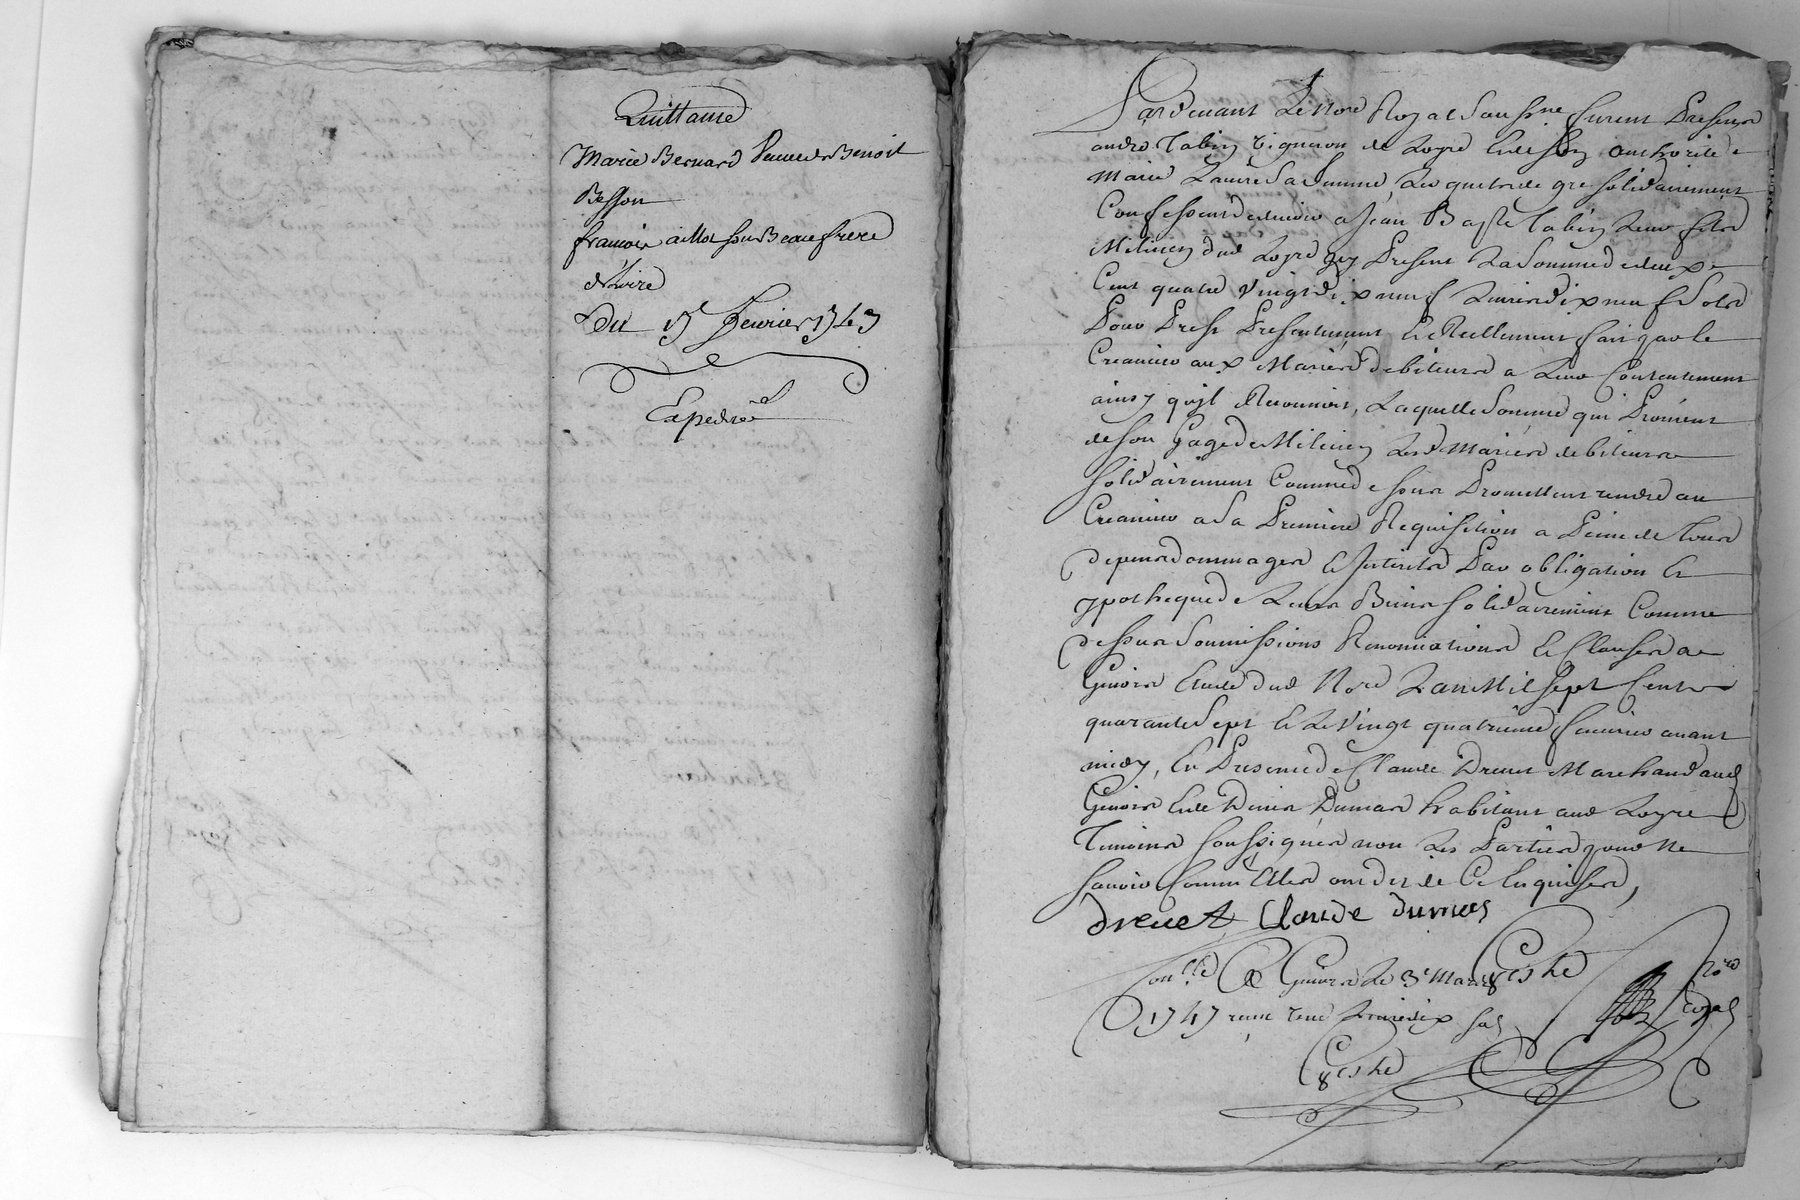 Quittance
Marie Bernard veuve de Benoit
Besson
francois aillot son Beaufrere
de Loire
du 17e fevrier 1747
Expediée
Pardevant Le Nore Royal Soussne furent Presens
andre Tabin vigneron de Loyre et de son authorité
Marie Laure sa femme, Lesquels de gre solidairement
Confessent devoir a Jean Bapte Tabin Leur fils
Milicien dud Loyre icy Present La somme de deux
Cent quatre vingt dix neuf Livres dix neuf sols
Pour Prest Presentement et Reellement fait par le
Creancier aux Mariés debiteurs a Leur Contentement
ainsy qu'ils Reconnoit, Laquelle somme qui Provient
de son Gage de Milicien Lesd Mariés debiteurs
solidairement Comme dessus Promettent rendre au
Creancier a sa Premiere Requisition a Peine de tous
depens dommages et Interets Par obligation et
ypotheque de Leurs Biens solidairement Comme
dessus soumissions Renonciations et Clauses a
Givors Etude dud Nore L'an Mil sept Cents
quarante sept et Le vingt quatrieme fevrier avant
midy, En Presence de Claude Drevet Marchand aud
Givors et de Denis Dumas habitant aud Loyre
Temoins soussignés non Les Parties pour ne
savoir comme Elles ont dit de Ce Enquises,
drevet Claude dumas
Conllé A Givors Le 3e Mars
1747 recu Trois Livres dix sols
Nore
Royal